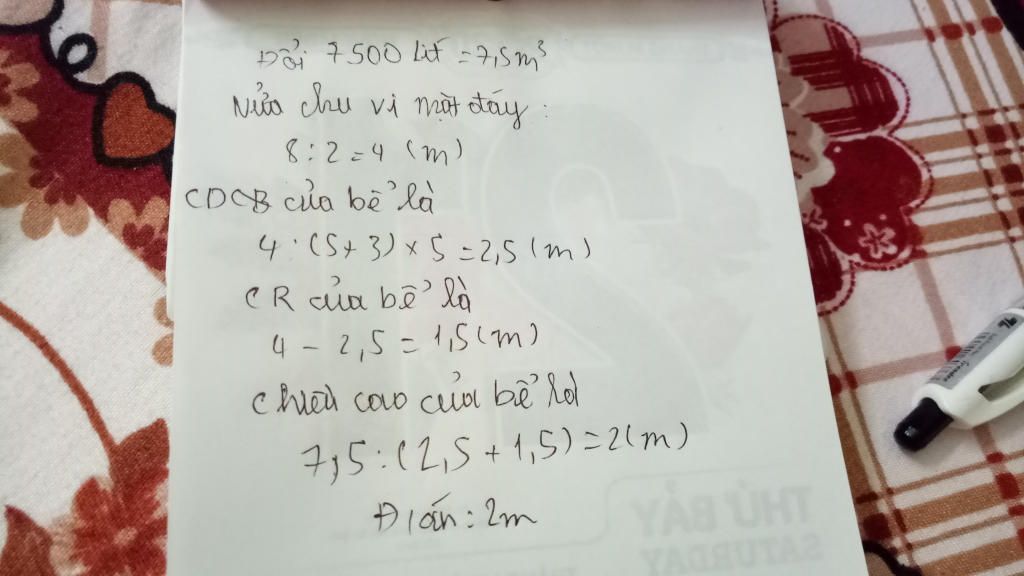 Đổi 7500 lít = 7,5m³
Nửa chu vi mặt đáy:
8 : 2 = 4 (m)
CDCB của bể là
4 : (5 + 3) × 5 = 2,5 (m)
CR của bể là
4 - 2,5 = 1,5 (m)
Chiều cao của bể là
7,5 : (2,5 + 1,5) = 2 (m)
Đ/án : 2m
THỨ BẢY
SATURDAY